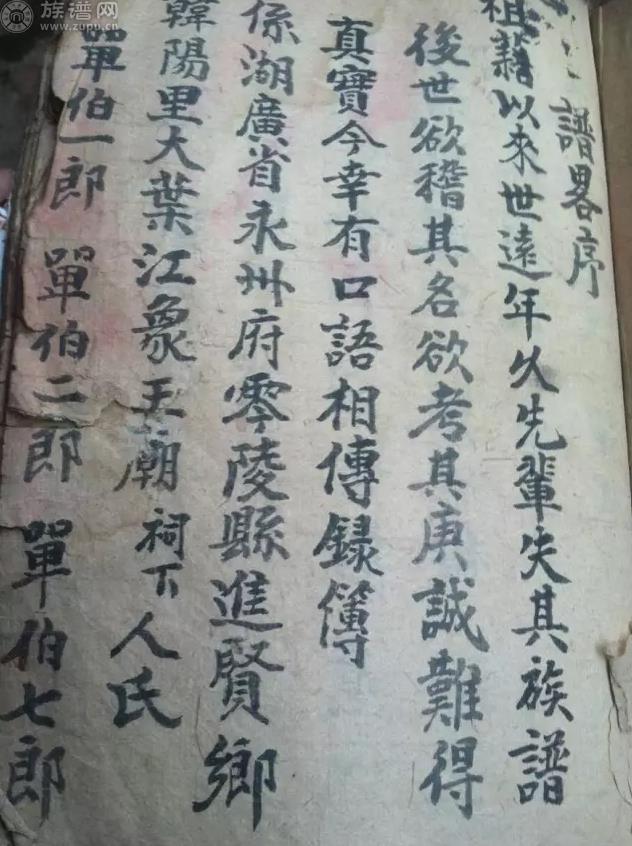 譜畧序
祖藉以來世遠年久先輩失其族譜
後世欲稽其名欲考其庚誠難得
真實今幸有口語相傳録簿
係湖廣省永州府零陵縣進賢鄉
韓陽里大葉江象王廟祠下人氏
單伯一郎 單伯二郎 單伯七郎
族谱网
www.zupu.cn